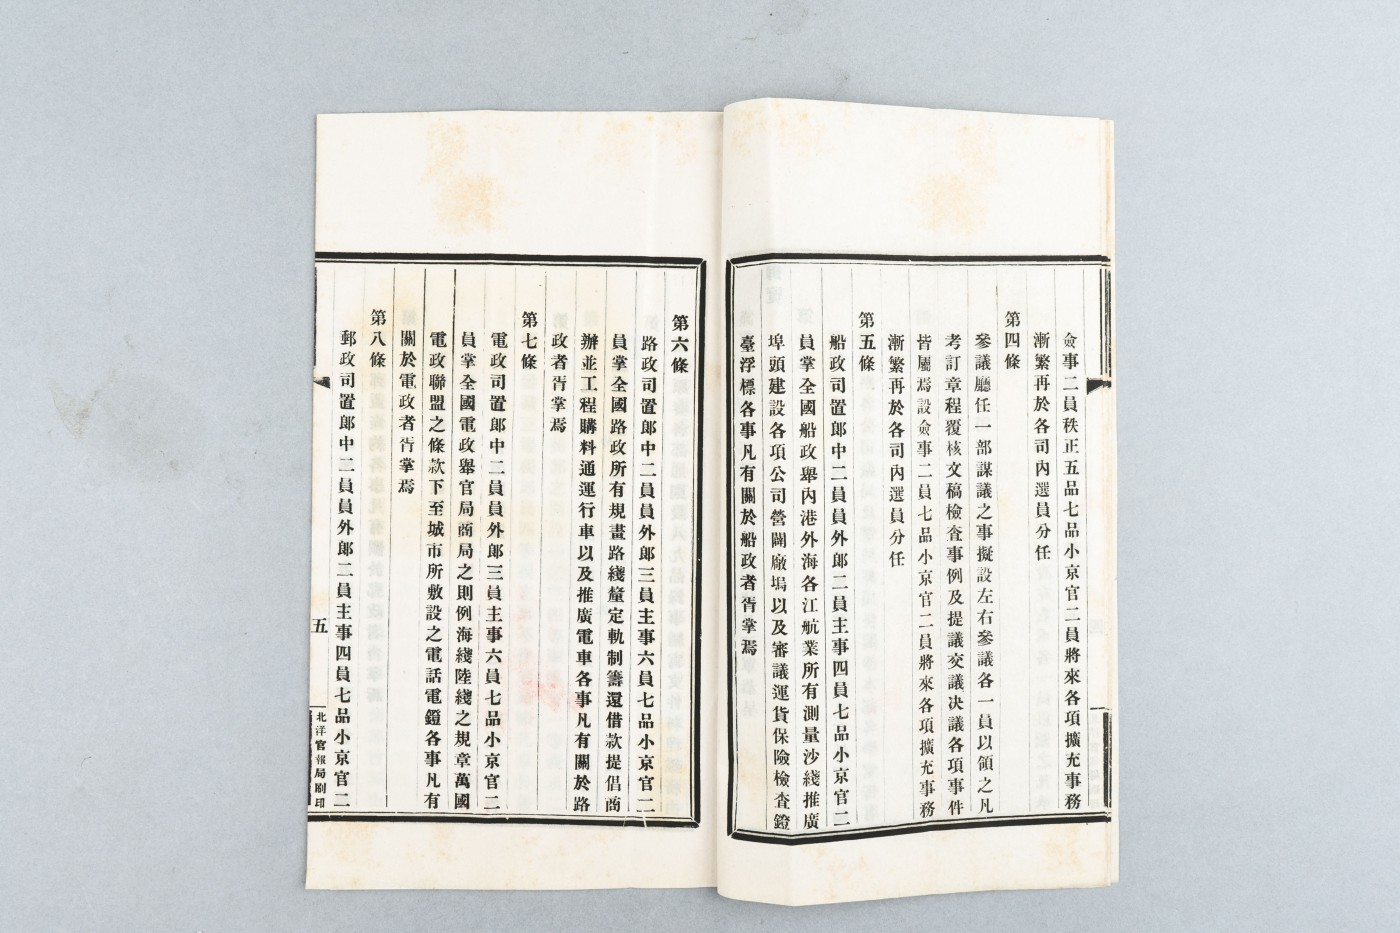 僉事二員秩正五品七品小京官二員將來各項擴充事務
漸繁再於各司內選員分任
第四條
參議廳任一部謀議之事擬設左右參議各一員以領之凡
考訂章程覆核文稿檢查事例及提議交議决議各項事件
皆屬焉設僉事二員七品小京官二員將來各項擴充事務
漸繁再於各司內選員分任
第五條
船政司置郎中二員員外郎二員主事四員七品小京官二
員掌全國船政舉內港外海各江航業所有測量沙綫推廣
埠頭建設各項公司營闢廠塢以及審議運貨保險檢查鐙
臺浮標各事凡有關於船政者胥掌焉
第六條
路政司置郎中二員員外郎三員主事六員七品小京官二
員掌全國路政所有規畫路綫釐定軌制籌還借款提倡商
辦並工程購料通運行車以及推廣電車各事凡有關於路
政者胥掌焉
第七條
電政司置郎中二員員外郎三員主事六員七品小京官二
員掌全國電政舉官局商局之則例海綫陸綫之規章萬國
電政聯盟之條款下至城市所敷設之電話電鐙各事凡有
關於電政者胥掌焉
第八條
郵政司置郎中二員員外郎二員主事四員七品小京官二
五
北洋官報局刷印